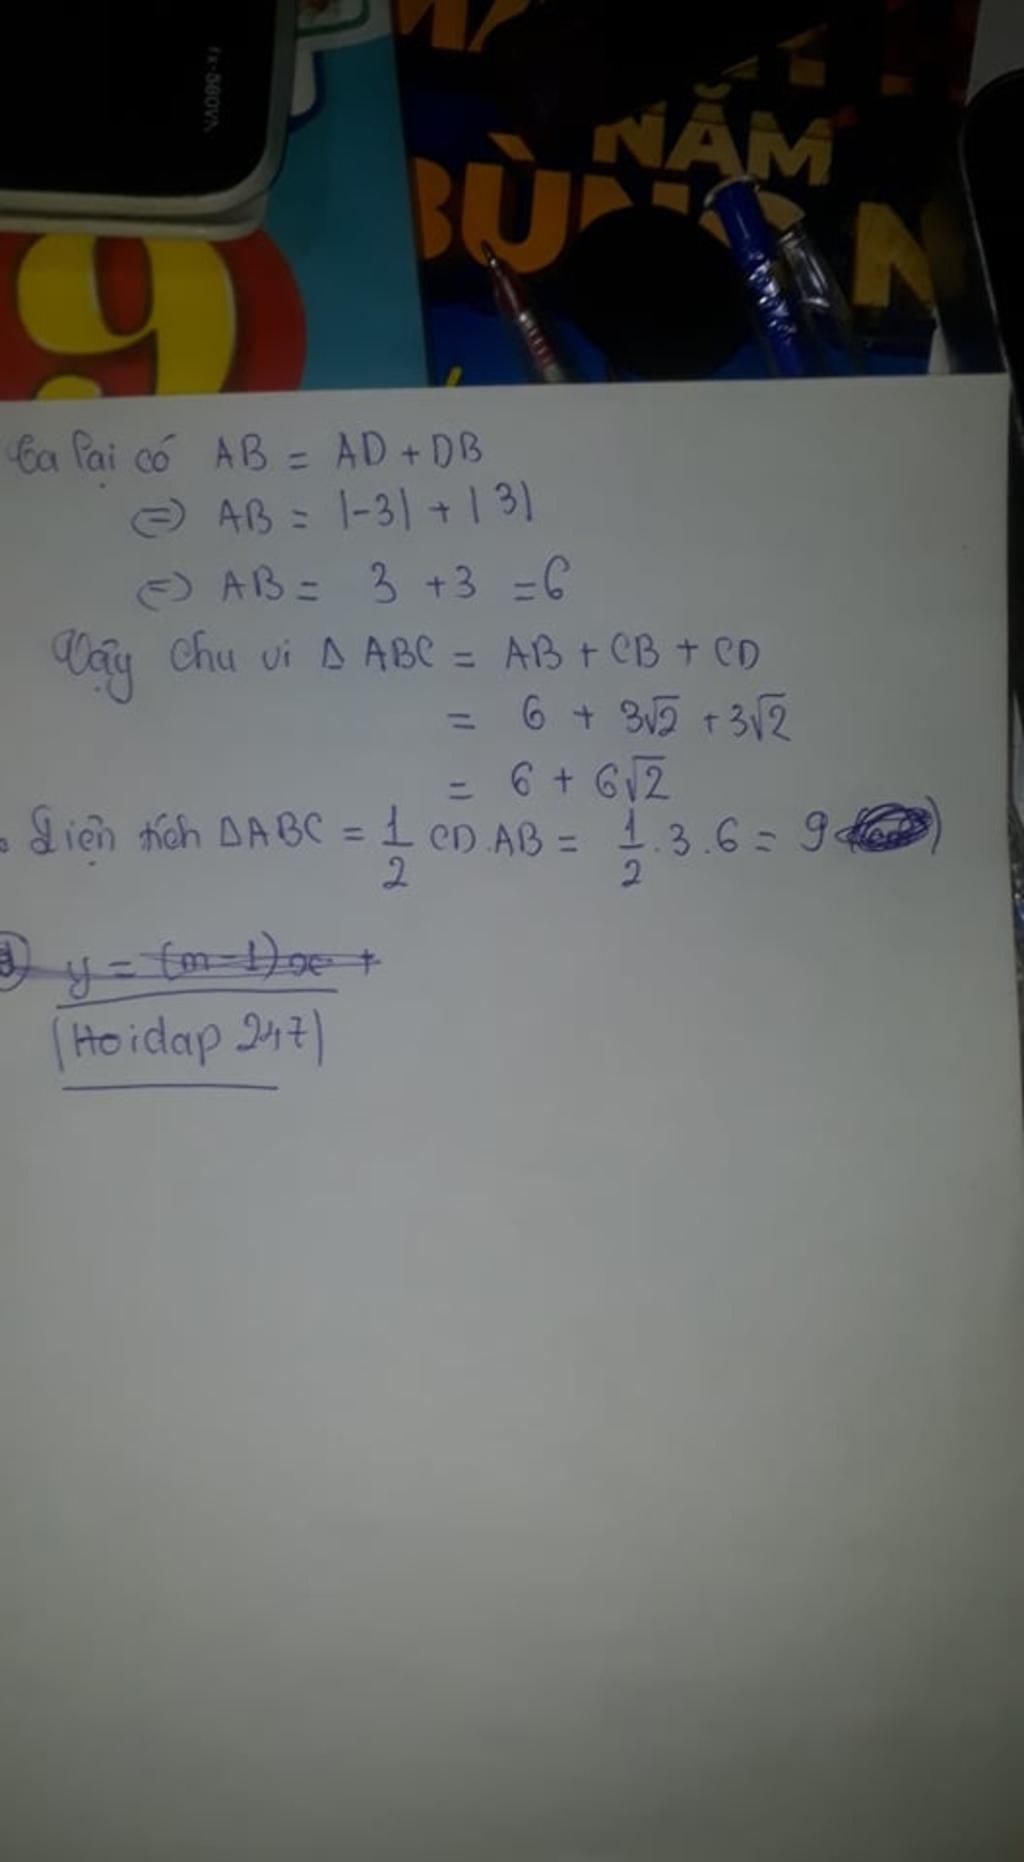 fx-580VN
NĂM
BÙNG N
9
Ta lại có AB = AD + DB
⇔ AB = |-3| + |3|
⇔ AB = 3 + 3 = 6
Vậy chu vi Δ ABC = AB + CB + CD
= 6 + 3√2 + 3√2
= 6 + 6√2
. Diện tích ΔABC = 1/2 CD.AB = 1/2 . 3 . 6 = 9
y = (m-1)x +
(Hoidap 247)